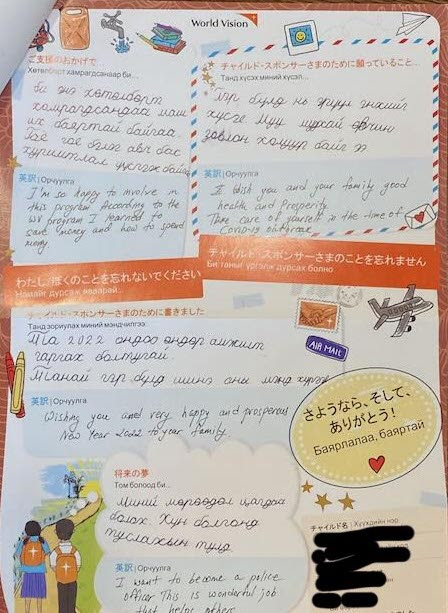 World Vision
ご支援のおかげで
Хөтөлбөрт хамрагдсанаар би...
би энэ хөтөлбөрт
хамрагдсандаа маш
их баяртай байгаа.
英訳 | Орчуулга
I'm so happy to involve in
this program. According to the
WV program I learned to
save money and how to spend
money.
チャイルド・スポンサーさまのために願っていること...
Танд хүсэх миний хүсэл...
Гэр бүлд нь эрүүл энхийг
хүсье
英訳 | Орчуулга
I wish you and your family good
health and Prosperity.
Take care of yourself in the time of
Covid-19 outbreak.
わたし、ぼくのことを忘れないでください
Намайг дурсаж яваарай...
チャイルド・スポンサーさまのことを忘れません
Би таныг үргэлж дурсах болно
チャイルド・スポンサーさまのために書きました
Танд зориулах миний мэндчилгээ
2022 ондоо өндөр амжилт
гаргах болтугай.
Танай гэр бүлд шинэ оны мэнд хүргэе
AIR MAIL
英訳 | Орчуулга
Wishing you and very happy and prosperous
New Year 2022 to your family.
さようなら、そして、
ありがとう!
Баярлалаа, баяртай
将来の夢
Том болоод би...
Миний мөрөөдөл цагдаа
болох. Хүн болгонд
туслахын тулд
英訳 | Орчуулга
I want to become a police
officer This is wonderful job
that helps others
チャイルド名 | Хүүхдийн нэр